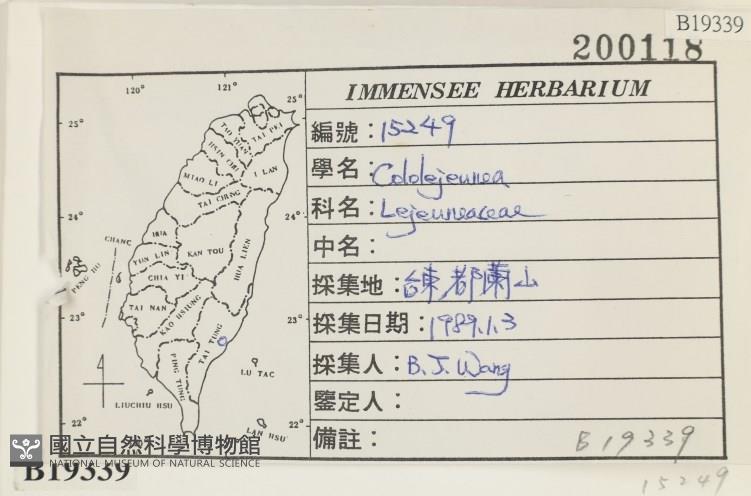 B19339
200118
120° 121°
25° 25°
TAO YUAN
TAI PEI
HSIN CHU
I LAN
MIAO LI
TAI CHUNG
24° 24°
CHANG HUA
YUN LIN
KAN TOU
HUA LIEN
PENG HU
CHIA YI
TAI NAN
KAO HSIUNG
23° 23°
TAI TUNG
PING TUNG
LU TAC
LIUCHIU HSU
LAN HSU
22° 22°
IMMENSEE HERBARIUM
編號：15249
學名：Cololejeunea
科名：Lejeuneaceae
中名：
採集地：台東都蘭山
採集日期：1989.1.3
採集人：B.J. Wang
鑒定人：
備註：
B19339
國立自然科學博物館
NATIONAL MUSEUM OF NATURAL SCIENCE
B19339
15249